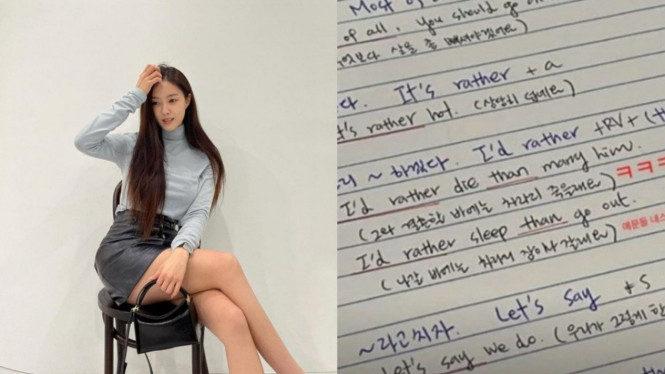 Most of
of all, you should go
살을 좀 빼야겠어요)
다. It's rather + a
t's rather hot. (상당히 덥네요)
리 ~ 하겠다. I'd rather +RV+ (t
I'd rather die than marry him. ㅋㅋㅋ
(그와 결혼할 바에는 차라리 죽을래요)
I'd rather sleep than go out. 예문들 내스
(나갈 바에는 차라리 잘래요)
~라고 치자. Let's say + S
Let's say we do. (우리가 그렇게 한